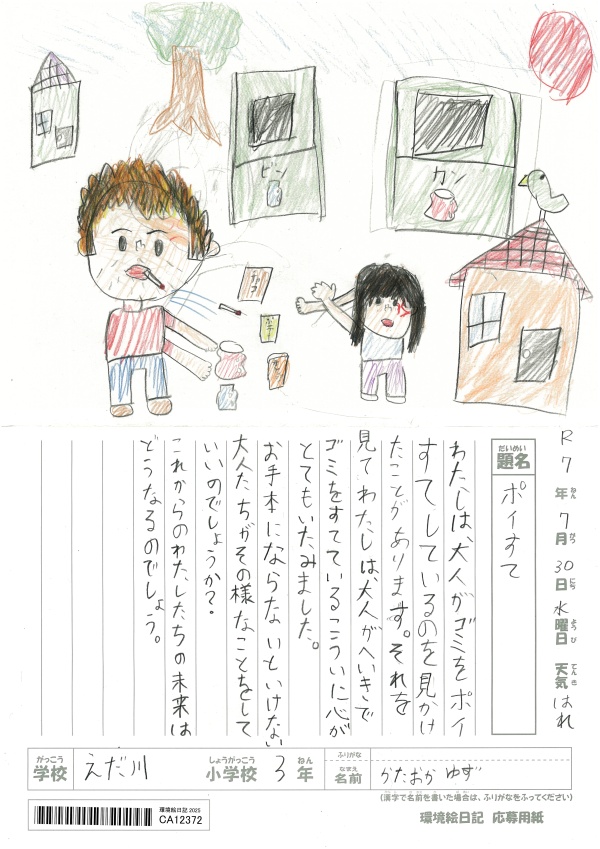 ビン
カン
R7年7月30日水曜日 天気 はれ
ねん
がつ
にち
ようび
てんき
だいめい
題名
ポイすて
わたしは、大人がゴミをポイ
すてしているのを見かけ
たことがあります。それを
見てわたしは、大人がへいきで
ゴミをすてているこういに心が
とてもいたみました。
お手本にならないといけない
大人たちがその様なことをして
いいのでしょうか?。
これからのわたしたちの未来は
どうなるのでしょう。
がっこう
学校
えだ川
しょうがっこう
小学校
3
ねん
年
ふりがな
なまえ
名前
かたおか ゆず
(漢字で名前を書いた場合は、ふりがなをふってください)
環境絵日記 2025
CA12372
環境絵日記 応募用紙